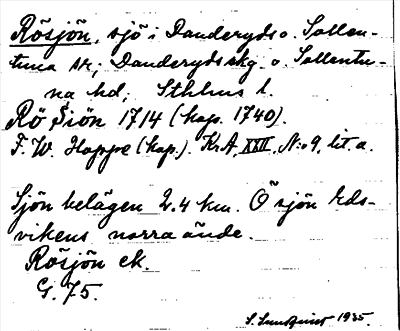 Rösjön, sjö i Danderyds o. Sollen-
tuna sr; Danderyds skg. o. Sollentu-
na hd; Sthlms l.
Rö Siön 1714 (kop. 1740).
F. W. Hoppe (kop.). Kr.A, XXII, N:o 9, lit. a.
Sjön belägen 2.4 km. Ö sjön Eds-
vikens norra ände.
Rösjön ek.
G. 75.
S. Lundquist 1935.